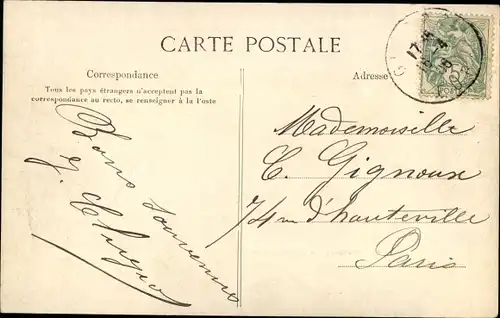 CARTE POSTALE
Correspondance
Tous les pays étrangers n'acceptent pas la
correspondance au recto, se renseigner à la Poste
Adresse
17
Bons souvenirs
Mademoiselle
C. Gignoux
74 rue d'hauteville
Paris